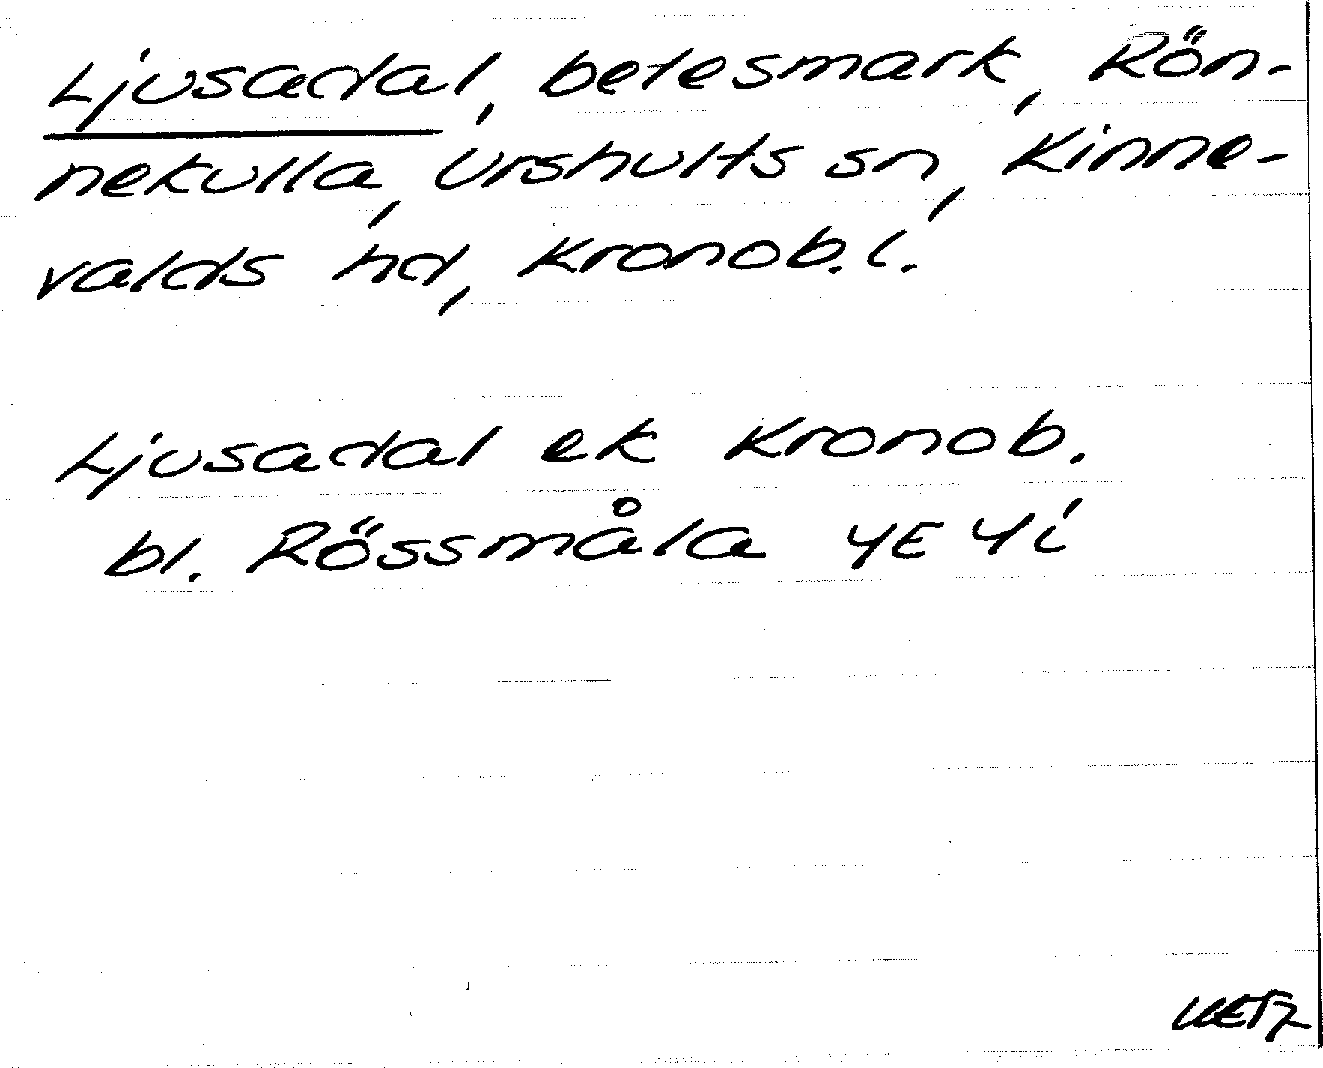 Ljusadal, betesmark, Rön-
nekulla, Urshults sn, Kinne-
valds hd, Kronob. l.
Ljusadal ek Kronob.
bl. Rössmåla 4E 4i